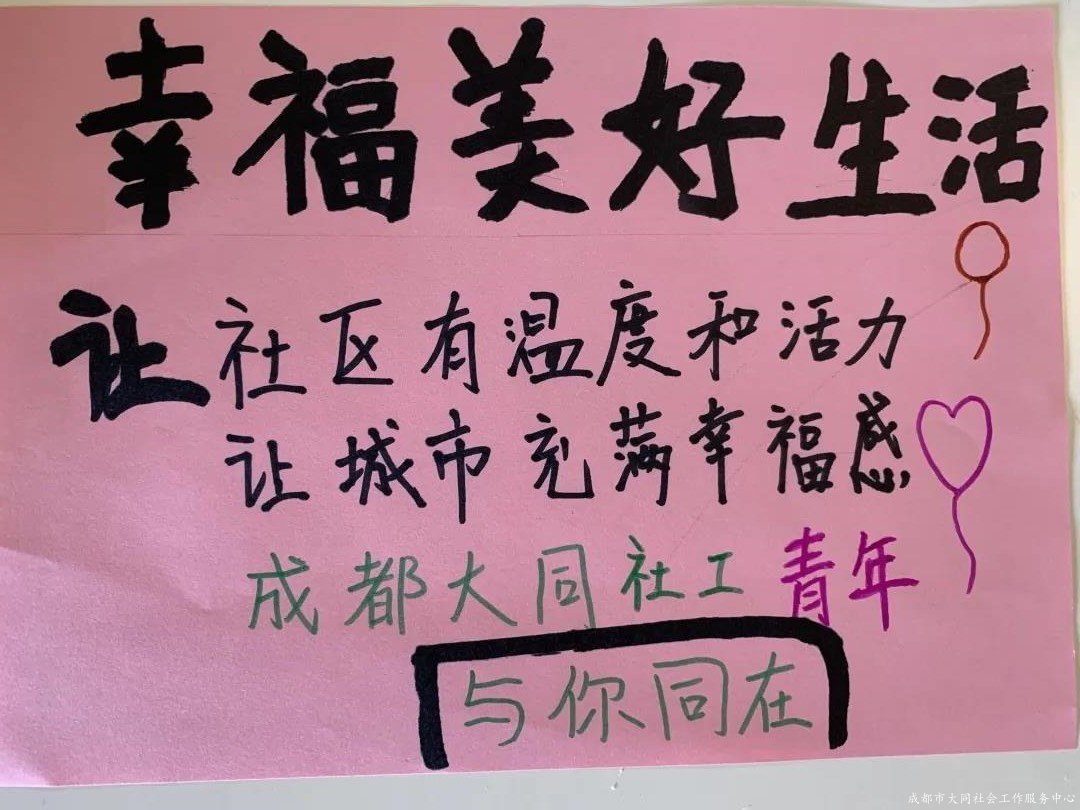 幸福美好生活
让社区有温度和活力
让城市充满幸福感
成都大同社工青年
与你同在
成都市大同社会工作服务中心